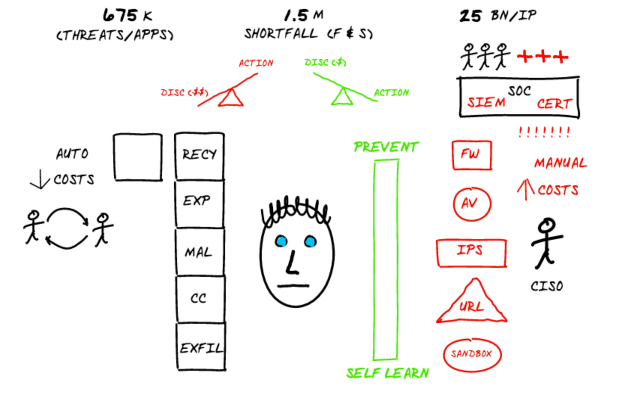 675 K
(THREATS/APPS)
1.5 M
SHORTFALL (F & S)
25 BN/IP
ACTION
DISC ($$)
DISC ($)
ACTION
SOC
SIEM
CERT
!!!!!!!
AUTO
↓ COSTS
RECY
EXP
MAL
CC
EXFIL
PREVENT
SELF LEARN
FW
AV
IPS
URL
SANDBOX
MANUAL
↑ COSTS
CISO